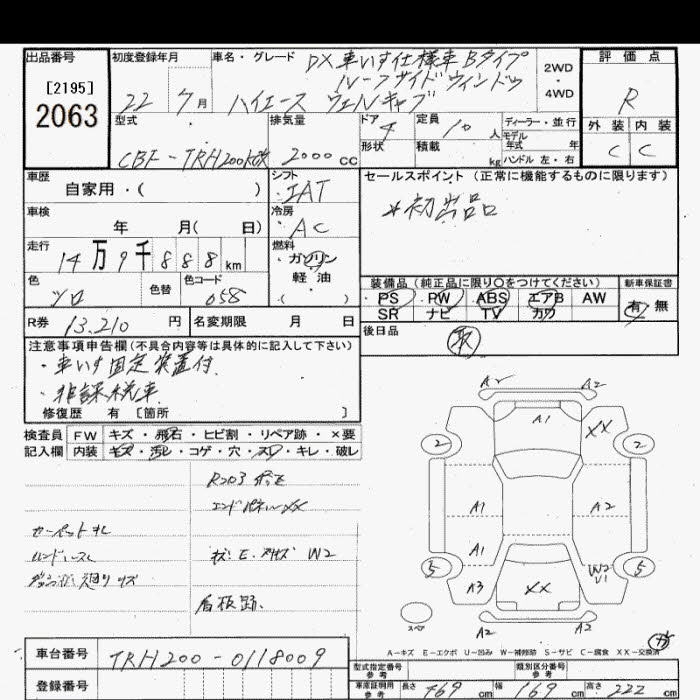 出品番号 初度登録年月 車名・グレード DX車いす仕様車Bタイプ 評価点
[2195] ルーフサイドウィンドウ 2WD
2063 22 7月 ハイエース ウェルキャブ 4WD R
型式 排気量 ドア 定員 ディーラー・並行 外装 内装
4 10人 モデル年式 年
CBF-TRH200K改 2000cc 形状 積載 kg ハンドル 左・右 C C
車歴 シフト セールスポイント (正常に機能するものに限ります)
自家用・( ) IAT
車検 冷房 *初出品
年 月( 日) AC
走行 燃料
14万9千888km ガソリン
色 色替 色コード 軽油 装備品 (純正品に限り○をつけてください) 新車保証書
シロ 058 ( ) PS PW ABS エアB AW 有 無
R券 13,210円 名変期限 月 日 SR ナビ TV カワ
注意事項申告欄(不具合内容等は具体的に記入して下さい) 後日品 取
・車いす固定装置付
・非課税車
修復歴 有 [箇所 ]
検査員 FW キズ・飛石・ヒビ割・リペア跡・×要
記入欄 内装 キズ・汚レ・コゲ・穴・スレ・キレ・破レ
A2 A2
A1 XX
2 2
エンドパネルXX
A1 A2
カーペットヨレ
A1
W2
5 W2 U1 5
A3 XX
看板跡.
スペア A2 A2
A-キズ E-エクボ U-凹み W-補修跡 S-サビ C-腐食 XX-交換済
車台番号 TRH200-0118009
登録番号
型式指定番号 参考 類別区分番号 参考
車庫証明用 参考 長さ 469cm 幅 169cm 高さ 222cm